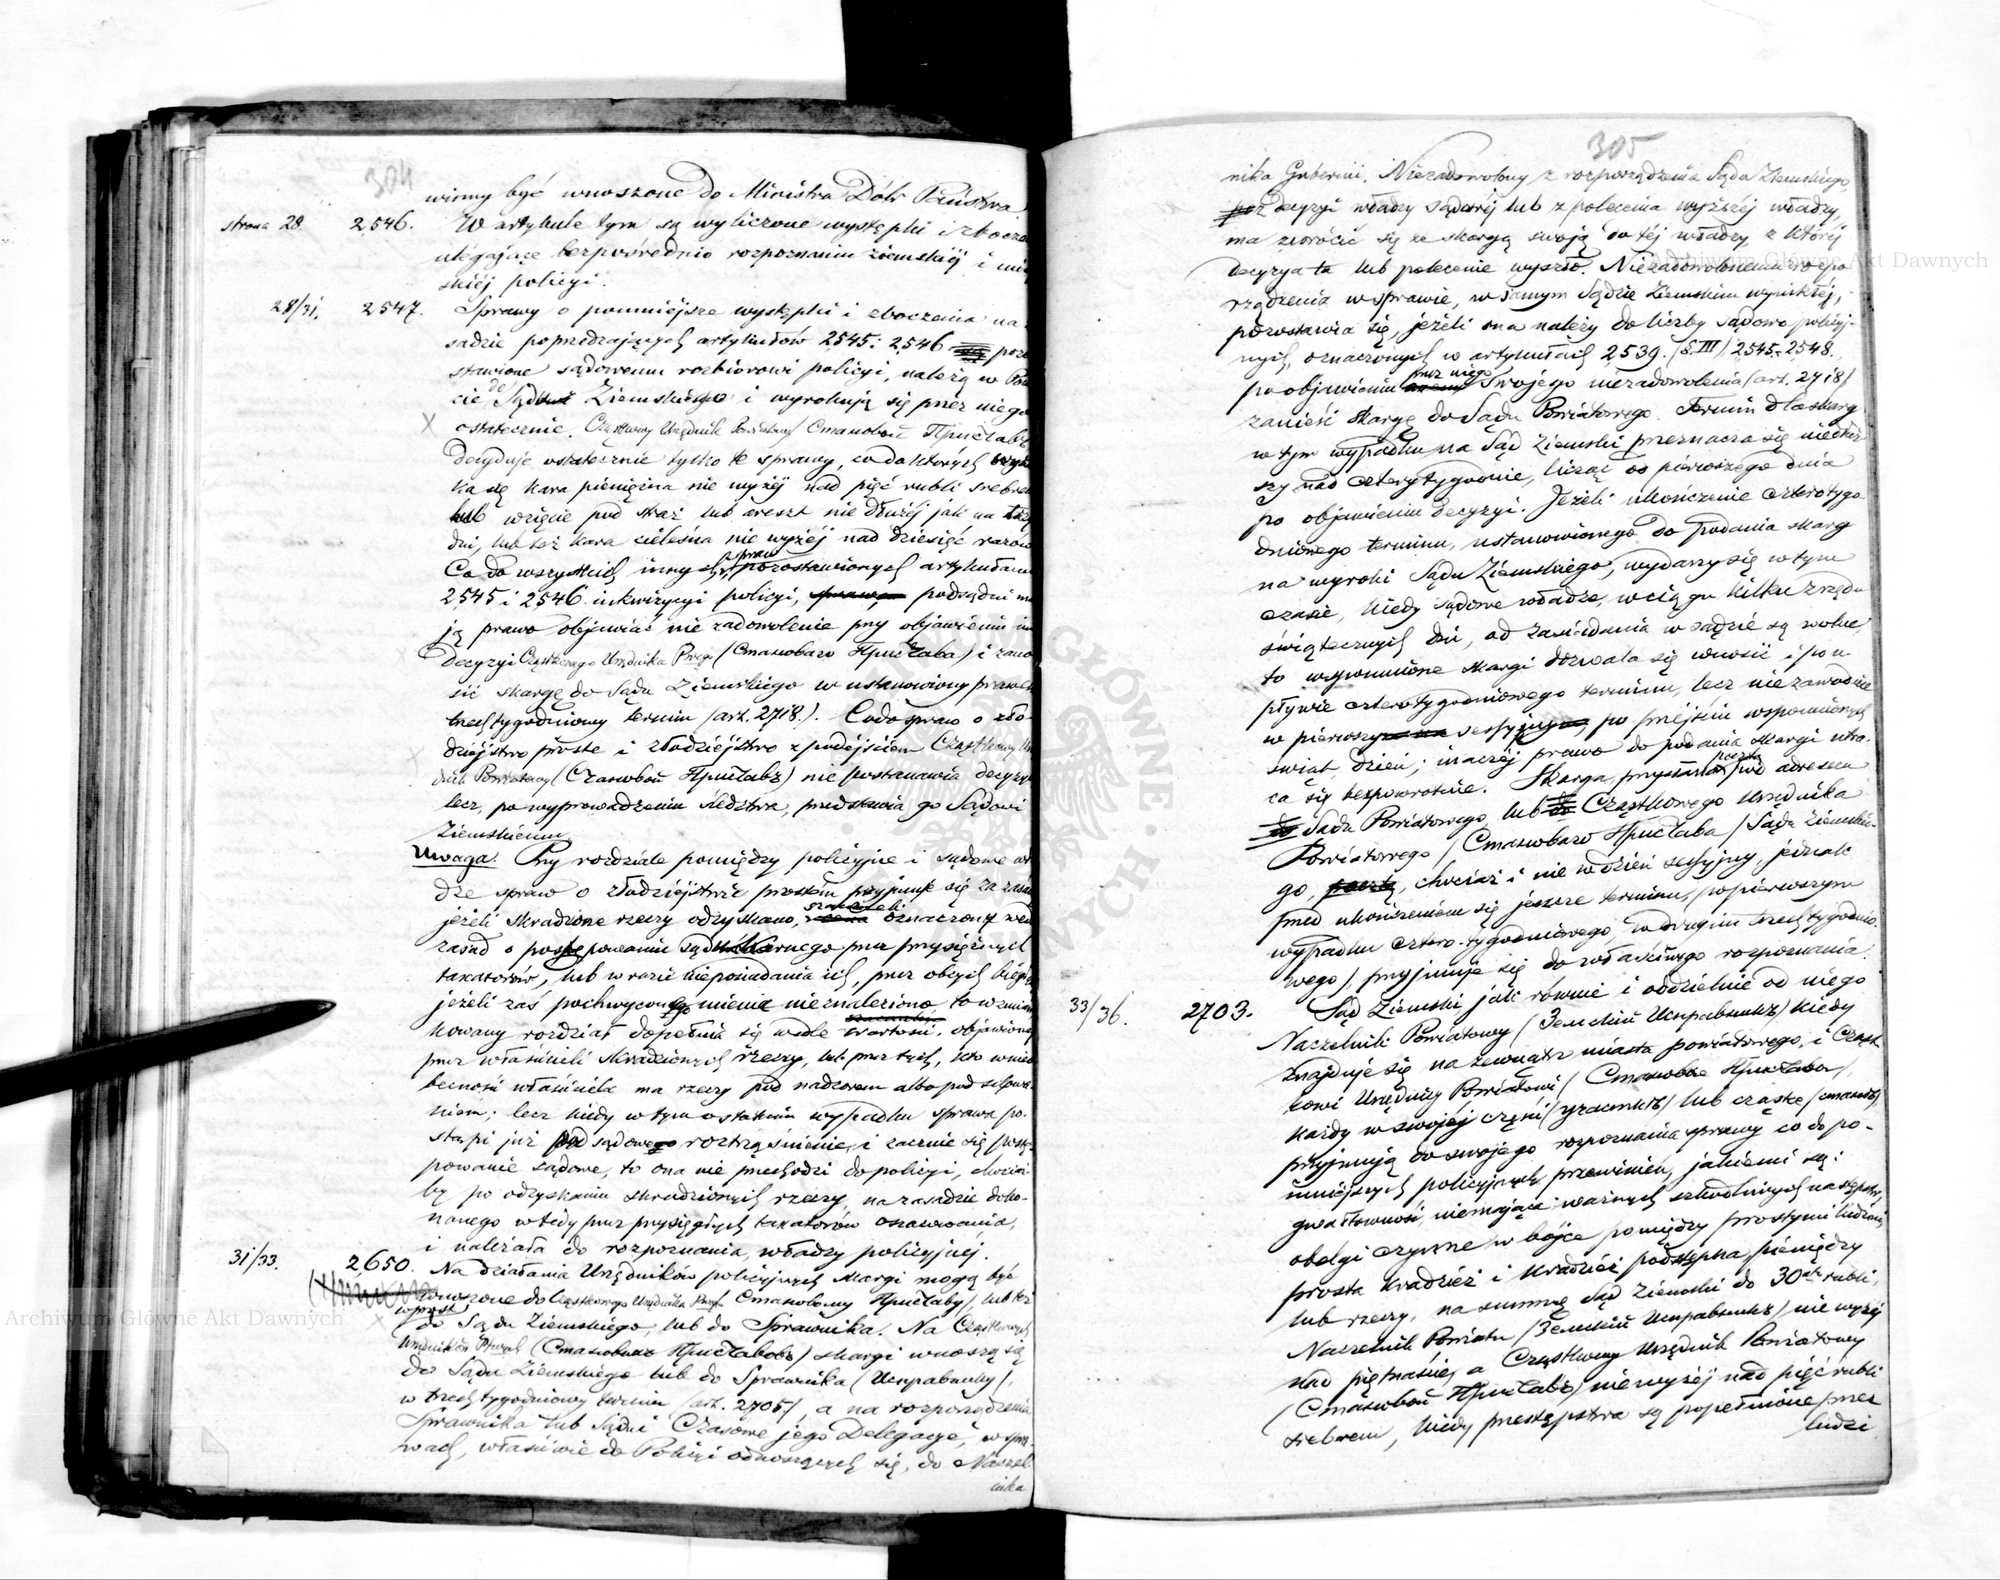 304
winny być wnoszone do Ministra Dóbr Państwa
strona 28. 2546. W artykule tym są wyliczone występki i zbocze
ulegające bezpośrednio rozpoznaniu ziemskiéj i miej
skiéj policyi.
28/31. 2547. Sprawy o pomniéjsze występki i zboczenia na za
sadzie poprzedzających artykułów 2545 i 2546 pozo
stawione sądowemu rozbiorowi policyi, należą w Powie
cie do Sądu Ziemskiego i wyrokują się przez niego
ostatecznie. Cząstkowy Urzędnik Powiatowy Становой Приставъ
decyduje ostatecznie tylko te sprawy, co do których
ka się kara pieniężna nie wyżéj nad pięć rubli srebrem
lub wzięcie pod straż lub areszt nie dłużéj jak na trzy
dni, lub też kara cielesna nie wyżéj nad dziesięć razów
Co do wszystkich innych spraw pozostawionych artykułami
2545 i 2546 inkwizycyi policyi, podsądni ma
ją prawo objawiać nie zadowolenie przy objawieniu im
decyzyi Cząstkowego Urzędnika Powgo (Становаго Пристава) i zano
sić skargę do Sądu Ziemskiego w ustanowiony prawem
trzechtygodniowy termin (art. 2718.). Co do spraw o zło-
dziejstwo proste i złodziéjstwo z podejściem Cząstkowy Urzę
dnik Powiatowy (Становой Приставъ) nie postanawia decyzyi
lecz, po wyprowadzeniu śledztwa, przedstawia go Sądowi
Ziemskiemu.
Uwaga. Przy rozdziale pomiędzy policyjne i sądowe wła
dze spraw o złodziéjstwie prostém przyjmuje się za zasadę
jeżeli skradzione rzeczy odzyskano, szacunek oznaczony wedł
zasad o postępowaniu sądu karnego przez przysięgłych
taksatorów, lub w razie nieposiadania ich, przez obcych biegłych
jeżeli zaś pochwyconego mienia nieznaleziono to wzmian
kowany rozdział dopełnia się wedle wartości, objawionéj
przez właścicieli skradzionych rzeczy, lub przez tych, kto w nieo
becności właściciela ma rzeczy pod nadzorem albo pod schowa
niem; lecz kiedy w tym ostatnim wypadku sprawa po-
stąpi już pod sądowe roztrząśnienie, i zacznie się postę
powanie sądowe, to ona nie przechodzi do policyi, chociaż
by po odzyskaniu skradzionych rzeczy, na zasadzie doko-
nanego wtedy przez przysięgłych taksatorów oszacowania,
i należała do rozpoznania władzy policyjnéj.
31/33. 2650. Na działania Urzędników policyjnych skargi mogą być
wnoszone do Cząstkowego Urzędnika Powgo Становому Приставу), lub też
wprost
do Sądu Ziemskiego, lub do Sprawnika. Na Cząstkowych
Urzędników Pwych (Становыхъ Приставовъ) skargi wnoszą się
do Sądu Ziemskiego lub do Sprawnika (Исправнику),
w trzechtygodniowy termin (art. 2705), a na rozporządzenia
Sprawnika lub Sądu i Czasowe jego Delegacye, w spra-
wach, właściwie do Policyi odnoszących się, do Naczel
nika
305
nika Gubernii. Niezadowolony z rozporządzenia Sądu Ziemskiego
decyzyi władzy sądowéj lub z polecenia wyższéj władzy,
ma zwrócić się ze skargą swoją do téj władzy, z któréj
decyzya ta lub polecenie wyszło. Niezadowolonemu z rozpo
rządzenia w sprawie, w samym Sądzie Ziemskim wynikłéj,
pozostawia się, jeżeli ona należy do liczby sądowo policyj-
nych, oznaczonych w artykułach 2539. (§. III) 2545-2548.
po objawieniu przez niego swojego niezadowolenia (art. 2718)
zanieść skargę do Sądu Powiatowego. Termin dla skarg
w tym wypadku na Sąd Ziemski przeznacza się nie dłuż
szy nad cztery tygodnie, licząc od pierwszego dnia
po objawieniu decyzyi. Jeżeli ukończenie czterotygo
dniowego terminu, ustanowionego do podania skarg
na wyroki Sądu Ziemskiego, wydarzy się w tym
czasie, kiedy sądowe władze, w ciągu kilku z rzędu
świątecznych dni, od zasiadania w sądzie są wolne,
to wspomnione skargi dozwala się wnosić i po u-
pływie czterotygodniowego terminu, lecz niezawodnie
w pierwszy sessyjny, po przejściu wspomnionych
świąt, dzień; inaczéj prawo do podania skargi utra-
ca się bezpowrotnie. Skarga, przysłana pocztą pod adresem
Sądu Powiatowego, lub Cząstkowego Urzędnika
Powiatowego (Становаго Пристава) Sądu Ziemskie-
go, chociaż i nie w dzień sessyjny, jednak
przed ukończeniem się jeszcze terminu, (w pierwszym
wypadku cztero-tygodniowego, w drugim trzechtygodnio-
wego) przyjmuje się do właściwego rozpoznania.
33/36. 2703. Sąd Ziemski jak równie i oddzielnie od niego
Naczelnik Powiatowy (Земскій Исправникъ) kiedy
znajduje się na zewnątrz miasta powiatowego, i Cząst
kowi Urzędnicy Powiatowi (Становые Пристава),
każdy w swojéj części (участкѣ) lub cząstce (станѣ),
przyjmują do swojego rozpoznania sprawy co do po-
mniéjszych policyjnych przewinień, jakiemi są:
gwałtowność, niemająca ważnych szkodliwych następstw,
obelgi czynne w bójce pomiędzy prostymi ludźmi,
prosta kradzież i kradzież podstępna pieniędzy
lub rzeczy, na summę Sąd Ziemski do 30stu rubli,
Naczelnik Powiatu (Земскій Исправникъ) nie wyżéj
nad piętnaście, a Cząstkowy Urzędnik Powiatowy
(Становой Приставъ) nie wyżéj nad pięć rubli
srebrem, kiedy przestępstwa są popełnione przez
ludzi
Archiwum Główne Akt Dawnych
Archiwum Główne Akt Dawnych